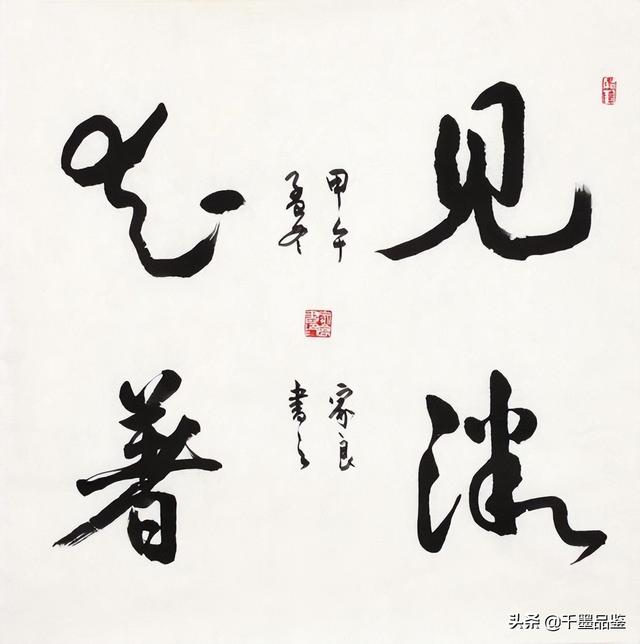 見微
知著
甲午
孟冬
家良
書之
头条 @千墨品鉴